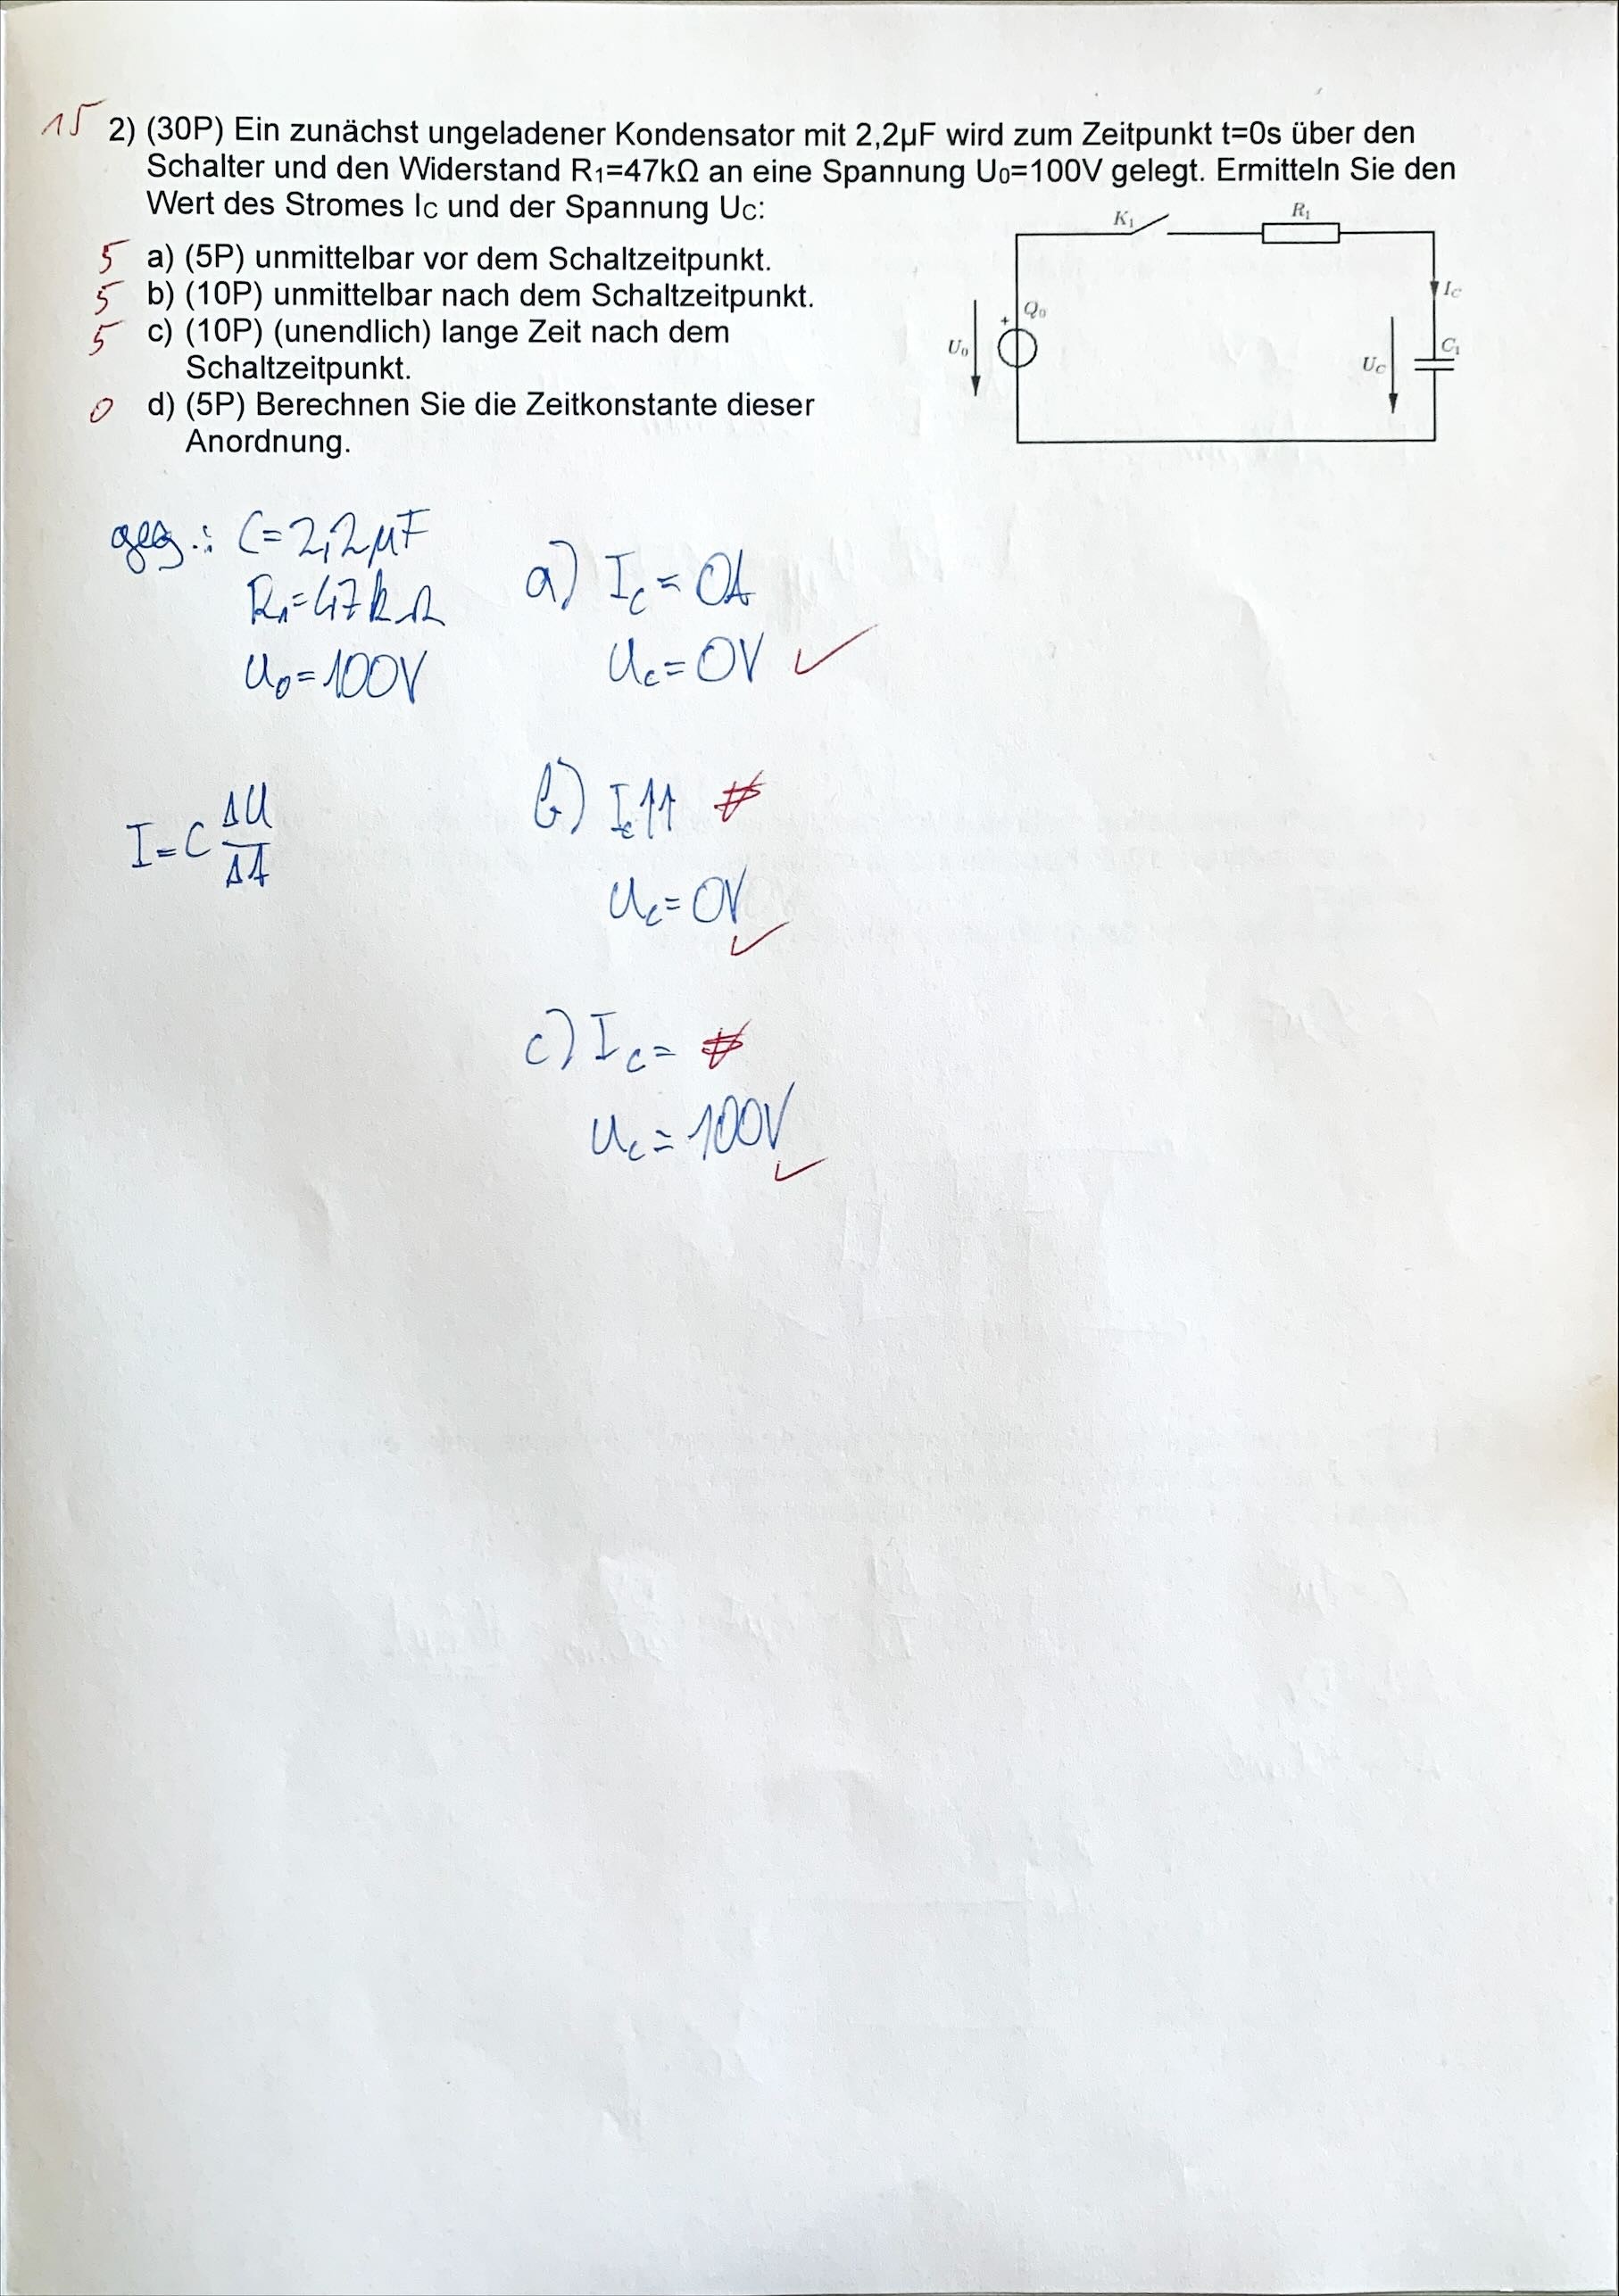 15 2) (30P) Ein zunächst ungeladener Kondensator mit 2,2µF wird zum Zeitpunkt t=0s über den
Schalter und den Widerstand R1=47kΩ an eine Spannung U0=100V gelegt. Ermitteln Sie den
Wert des Stromes IC und der Spannung UC:
5 a) (5P) unmittelbar vor dem Schaltzeitpunkt.
5 b) (10P) unmittelbar nach dem Schaltzeitpunkt.
5 c) (10P) (unendlich) lange Zeit nach dem
Schaltzeitpunkt.
0 d) (5P) Berechnen Sie die Zeitkonstante dieser
Anordnung.
K1
R1
IC
+ Q0
U0
UC
C1
geg.: C=2,2µF
R1=47kΩ
U0=100V
a) Ic=0A
Uc=0V ✓
I=C ΔU/Δt
b) Ic↑↑
Uc=0V ✓
c) Ic=
Uc=100V ✓